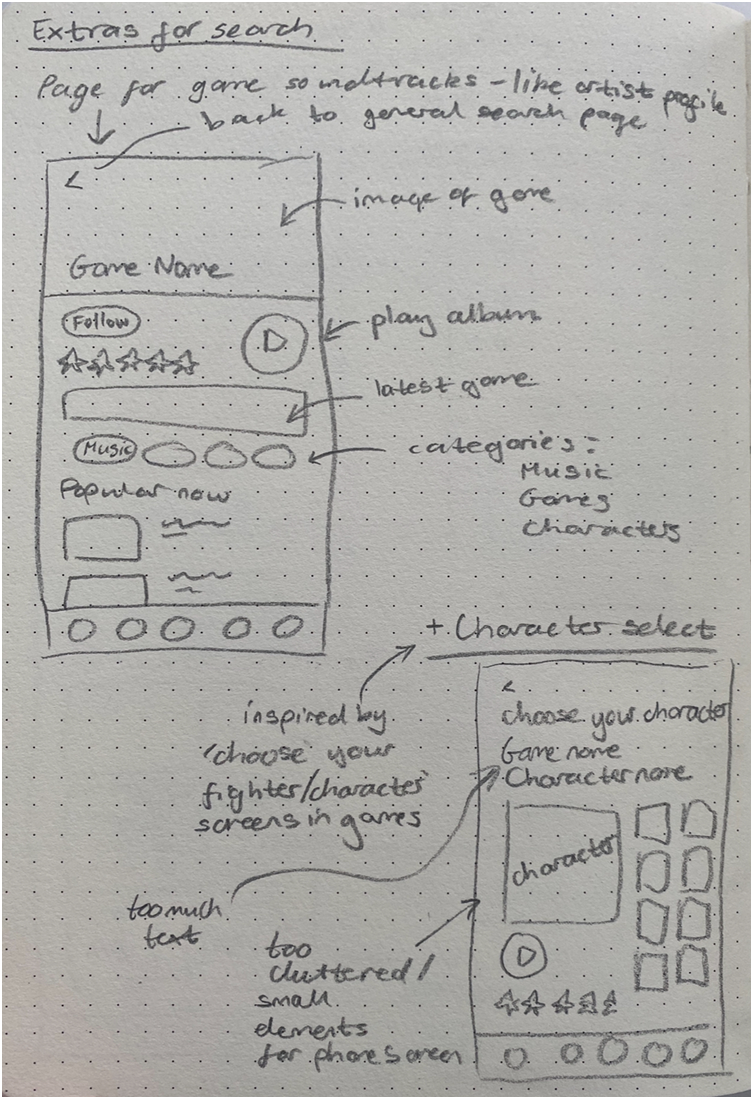 Extras for search
Page for game soundtracks - like artist profile
back to general search page
<
image of game
Game Name
Follow
play album
latest game
Music
categories:
Music
Games
Characters
Popular now
+ Character select
inspired by
'choose your
fighter/character'
screens in games
<
choose your character
Game name
Character name
character
too much
text
too
cluttered/
small
elements
for phone screen